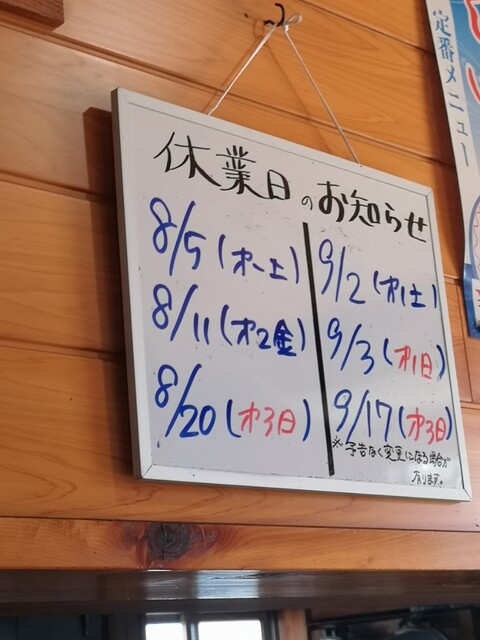 休業日のお知らせ
8/5(才一土)
8/11(才2金)
8/20(才3日)
9/2(才1土)
9/3(才1日)
9/17(才3日)
※予告なく変更になる場合が
有ります。
定番メニュー